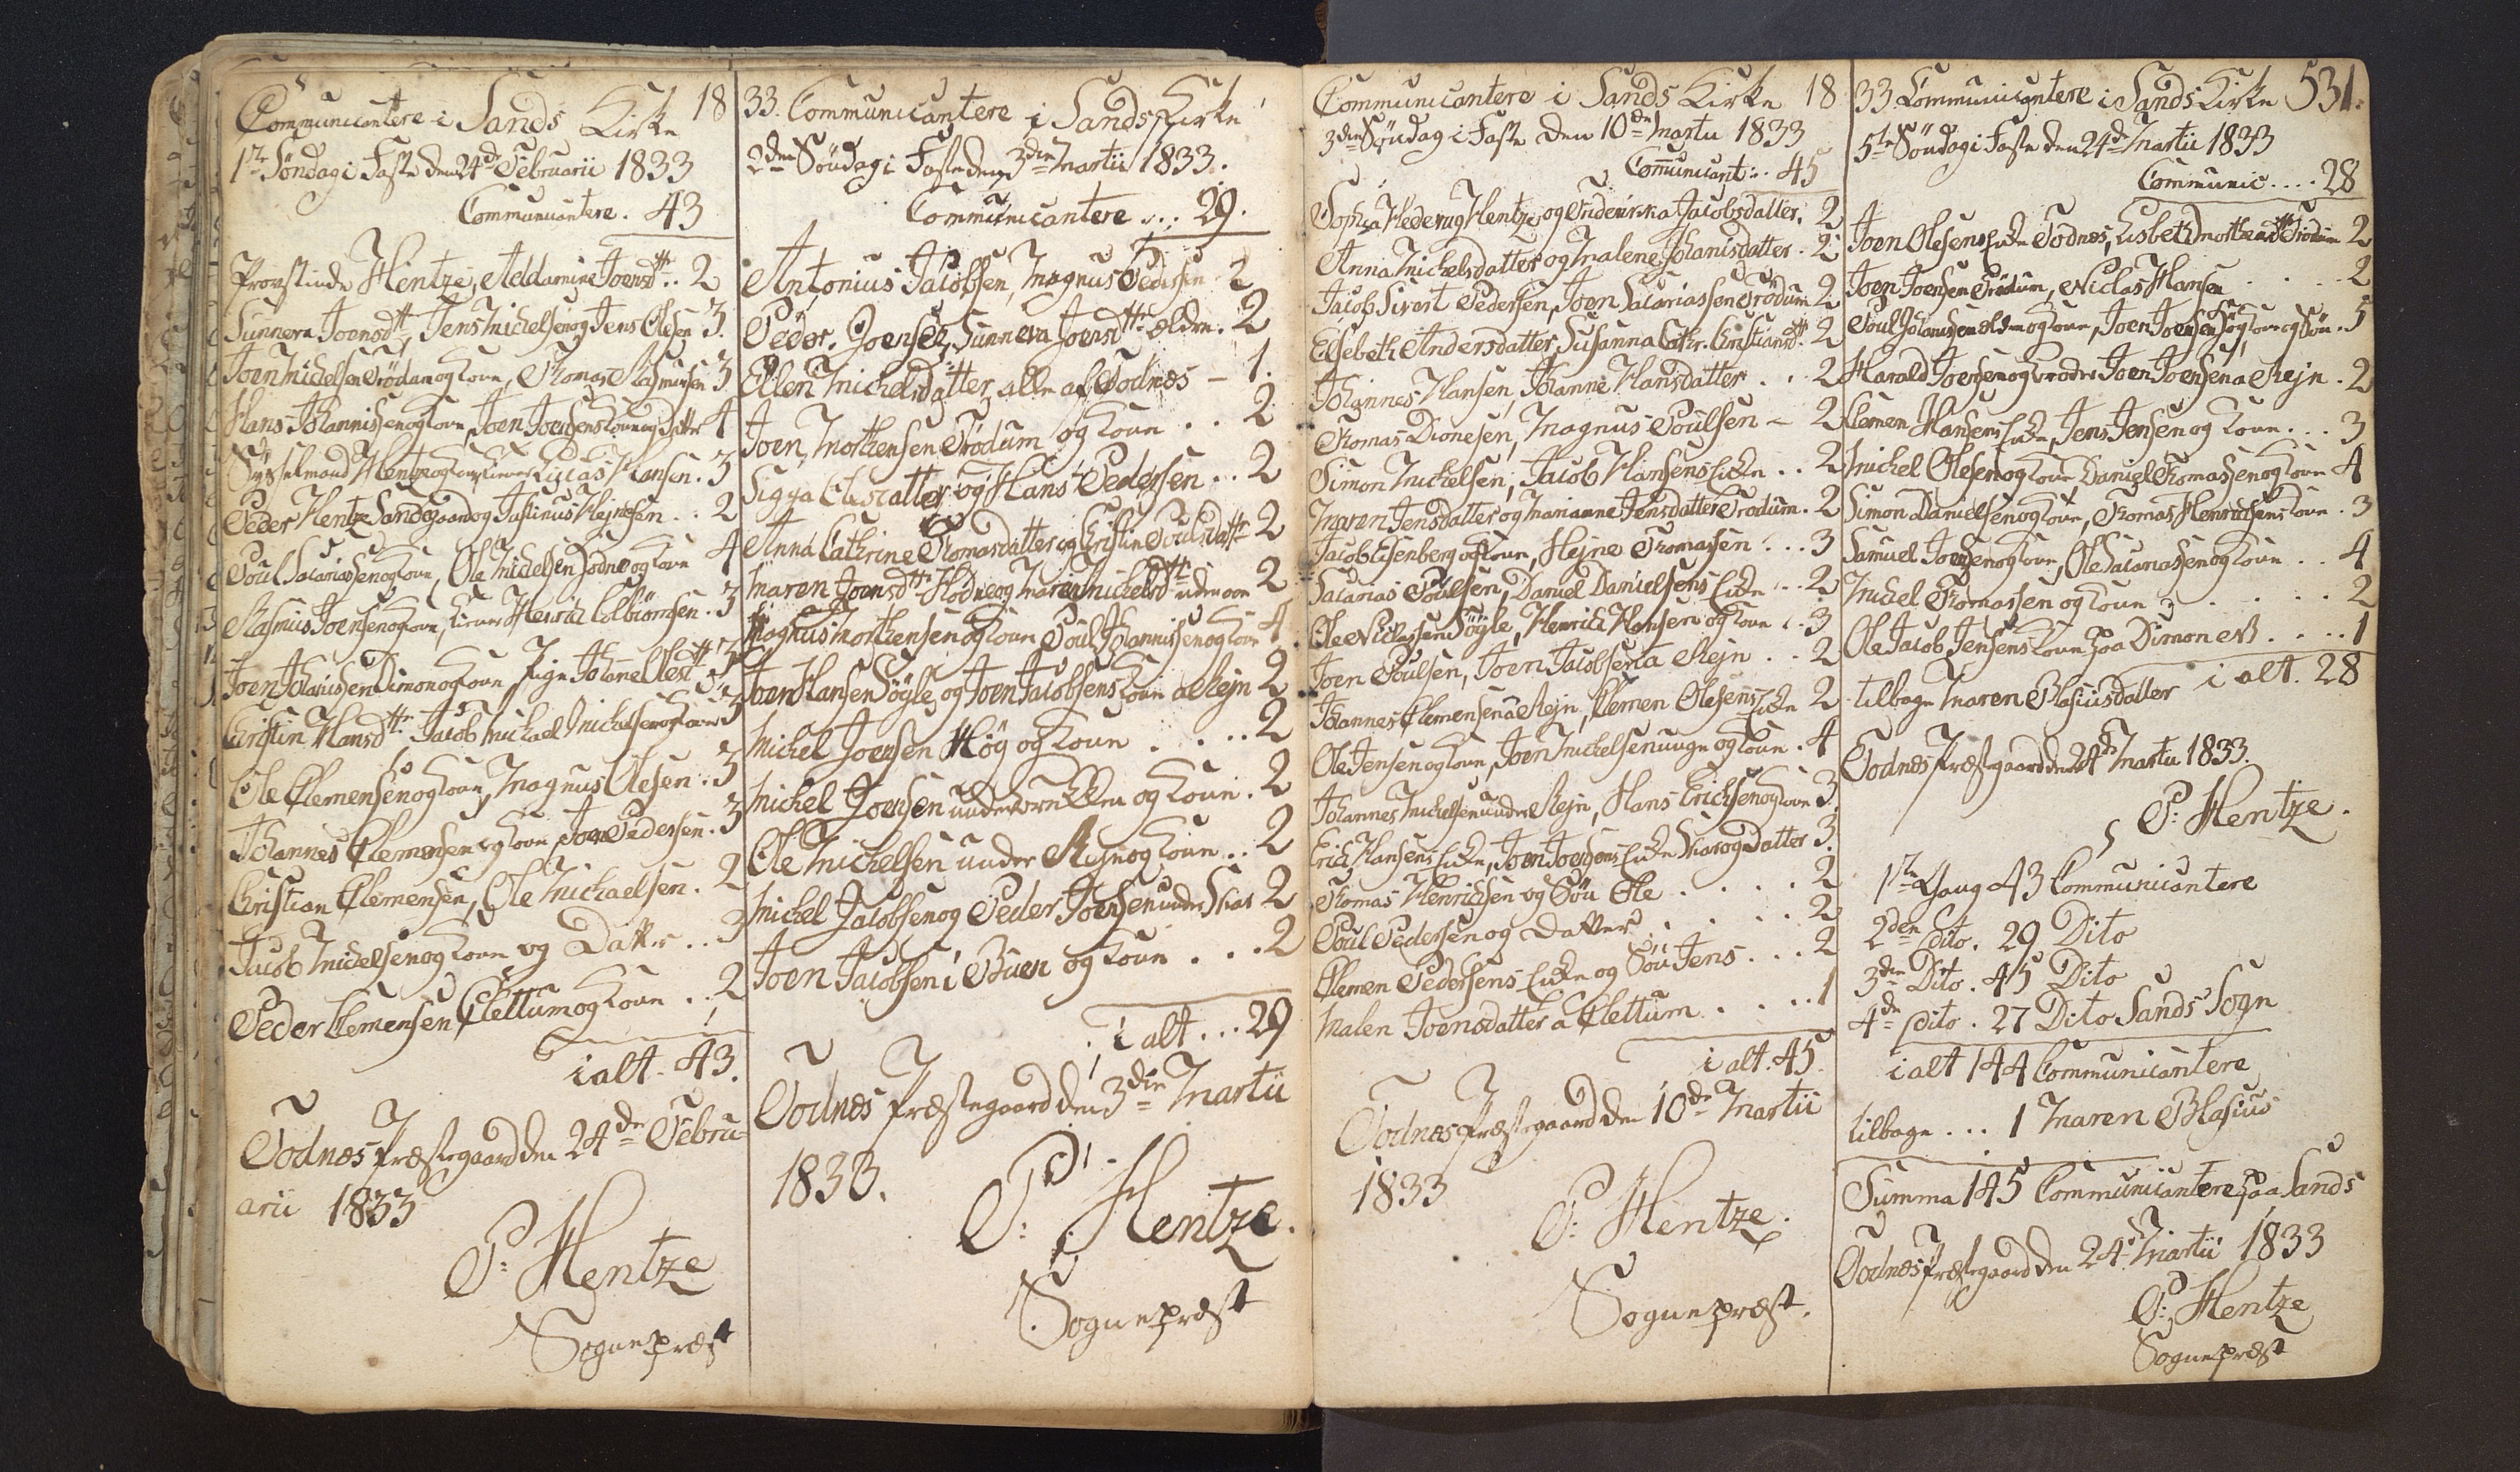 Communicantere i Sands Kirke 18
1ste Söndag i Faste den 24de Februarii 1833
Communicantere. 43
Provstinde Hentze, Addamine Joensdtr .. 2
Sunneva Joensdtr, Jens Michelsen og Jens Olesen 3.
Joen Michelsen Trödum og Kone, Thomas Rasmussen 3
Hans Johannissen og Kone, Joen Joensens Kone og datter 4
Sysselmand Hentze og Kone, Lucas Hansen. 3
Peder Hentze Sandsgaard og Justinus Hejnesen .. 2
Poul Sacariassen og Kone, Ole Michelsen og Kone 4
Rasmus Joensen og Kone, Henrich Colbiörnsen. 3
Joen Johanissen Dimon og Kone, Pige Johanne Olesdtr 3
Christin Hansdtr. Jacob Michael Michelsen og Kone 3
Ole Clemensen og Kone, Magnus Olesen .. 3
Johannes Clemensen og Kone, Joen Pedersen. 3
Christian Clemensen, Ole Michaelsen. 2
Jacob Michelsen og Kone og Datter .. 3
Peder Clemensen Clettum og Kone .. 2
i alt. 43.
Todnes Præstegaard den 24de Febru-
arii 1833
P: Hentze
Sognepræst
33. Communicantere i Sands Kirke
2den Söndag i Faste den 3die Martii 1833.
Communicantere ... 29.
Antonius Jacobsen, Magnus Pedersen 2
Peder Joensen, Sunneva Joensdtr ældre. 2
Ellen Michelsdatter alle af Todnes – 1.
Joen Mortensen Trödum og Kone .. 2
Sigga Olesdatter og Hans Pedersen .. 2
Anna Cathrine Thomasdatter og Christin Poulsdattr 2
Maren Joensdtr og Maren Michelsdtr 2
Magnus Mortensen og Kone Poul Johannissen og Kone 4
Joen Hansen Söyle, og Joen Jacobsens Kone a Rejn 2
Michel Joensen Hög og Kone . . .. 2
Michel Joensen og Kone. 2
Ole Michelsen under Rejn og Kone .. 2
Michel Jacobsen og Peder Joensen under Skar 2
Joen Jacobsen i Buen og Kone . . . 2
i alt ... 29
Todnes Præstegaard den 3die Martii
1833.
P: Hentze.
Sognepræst
Communicantere i Sands Kirke 18
3die Söndag i Faste den 10de Martii 1833
Communicant:. 45
Sophia Hedevig Hentze og Friderikka Jacobsdatter. 2
Anna Michelsdatter og Malene Johanisdatter. 2
Jacob Sivert Pedersen, Joen Sacariassen Trödum 2
Elsebeth Andersdatter, Susanna Cathr. Christiansdtr. 2
Johannes Hansen, Johanne Hansdatter . . 2
Thomas Dionesen, Magnus Poulsen – 2
Simon Michelsen, Jacob Hansens Enke .. 2
Maren Jensdatter og Marianne Jensdatter Trödum. 2
Jacob Eisenberg og Kone, Hejne Thomassen ... 3
Sacarias Poulsen, Daniel Danielsens Enke ... 2
Ole Niclassen Söyle, Henrich Hansen og Kone .. 3
Joen Poulsen, Joen Jacobsen a Rejn .. 2
Johannes Clemensen a Rejn, Clemen Olesens Enke 2
Ole Jensen og Kone, Joen Michelsen unge og Kone. 4
Johannes Michelsen under Rejn, Hans Erichsen og Kone 3.
Erich Hansens Enke, Joen Joensens Enke Skar og Datter 3.
Thomas Henrichsen og Sön Ole . . . . 2
Poul Pedersen og Datter . . . . 2
Clemen Pedersens Enke og Sön Jens . . . 2
Malen Joensdatter a Clettum . . . .. 1
i alt. 45.
Todnes Præstegaard den 10de Martii
1833
P: Hentze.
Sognepræst.
33 Communicantere i Sands Kirke 531.
5te Söndag i Faste den 24de Martii 1833
Communic .... 28
Joen Olesens Enke Todnes, Lisbeth Mortensdtr Trödum 2
Joen Joensen Trödum, Niclas Hansen . . . . 2
Poul Johannesen ældre og Kone, Joen Joensen Höj Kone og Sön. 5
Harald Joensen og broder Joen Joensen a Rejn. 2
Clemen Hansens Enke, Jens Jensen og Kone ... 3
Michel Olesen og Kone Daniel Thomassen og Kone 4
Simon Danielsen og Kone, Thomas Henrichsens Kone. 3
Samuel Joensen og Kone, Ole Sacariassen og Kone .. 4
Michel Thomassen og Kone . . . . . 2
Ole Jacob Jensens Kone paa Dimon NB . . . . 1
i alt. 28
tilbage Maren Blasiusdatter
Todnes Præstegaard den 24de Martii 1833.
P: Hentze.
1ste Gang 43 Communicantere
2den Dito. 29 Dito
3die Dito. 45 Dito
4de Dito. 27 Dito Sands Sogn
i alt 144 Communicantere
tilbage ... 1 Maren Blasius
Summa 145 Communicantere paa Sands
Todnes Præstegaard den 24de Martii 1833
P: Hentze
Sognepræst